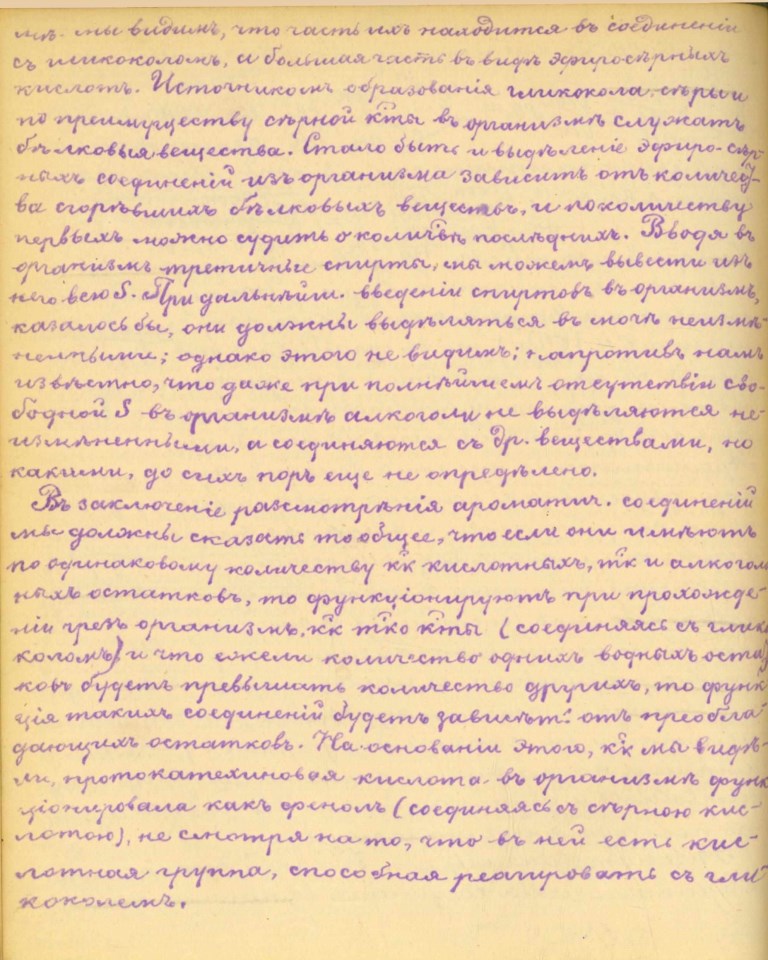 мѣ. мы видимъ, что часть ихъ находится въ соединеніи
съ гликоколомъ, а большая часть въ видѣ эфиросѣрныхъ
кислотъ. Источникомъ образованія гликокола, сѣры и
по преимуществу сѣрной к̃ты въ организмѣ служатъ
бѣлковыя вещества. Стало быть и выдѣленіе эфиро-сѣр-
ныхъ соединеній изъ организма зависитъ отъ количест-
ва сгорѣвшихъ бѣлковыхъ веществъ, и по количеству
первыхъ можно судить о колич̃вѣ послѣднихъ. Вводя въ
организмъ третичные спирты, мы можемъ вывести изъ
него всю S. При дальнѣйш. введеніи спиртовъ въ организмъ,
казалось бы, они должны выдѣляться въ мочѣ неизмѣ-
ненными; однако этого не видимъ; напротивъ намъ
извѣстно, что даже при полнѣйшемъ отсутствіи сво-
бодной S въ организмѣ алкоголи не выдѣляются не-
измѣненными, а соединяются съ др. веществами, но
какими, до сихъ поръ еще не опредѣлено.
Въ заключеніе разсмотрѣнія ароматич. соединеній
мы должны сказать то общее, что если они имѣютъ
по одинаковому количеству к̃къ кислотныхъ, т̃къ и алкоголь
ныхъ остатковъ, то функціонируютъ при прохожде-
ніи чрезъ организмъ, к̃къ т̃ко к̃ты (соединяясь съ глико
коломъ) и что ежели количество однихъ водныхъ остат
ковъ будетъ превышать количество другихъ, то функ
ція такихъ соединеній будетъ зависѣть отъ преобла-
дающихъ остатковъ. На основаніи этого, к̃къ мы видѣ-
ли, протокатехиновая кислота въ организмѣ функ
ціонировала какъ фенолъ (соединяясь съ сѣрною кис-
лотою), не смотря на то, что въ ней есть кис-
лотная группа, способная реагировать съ гли
коколемъ.